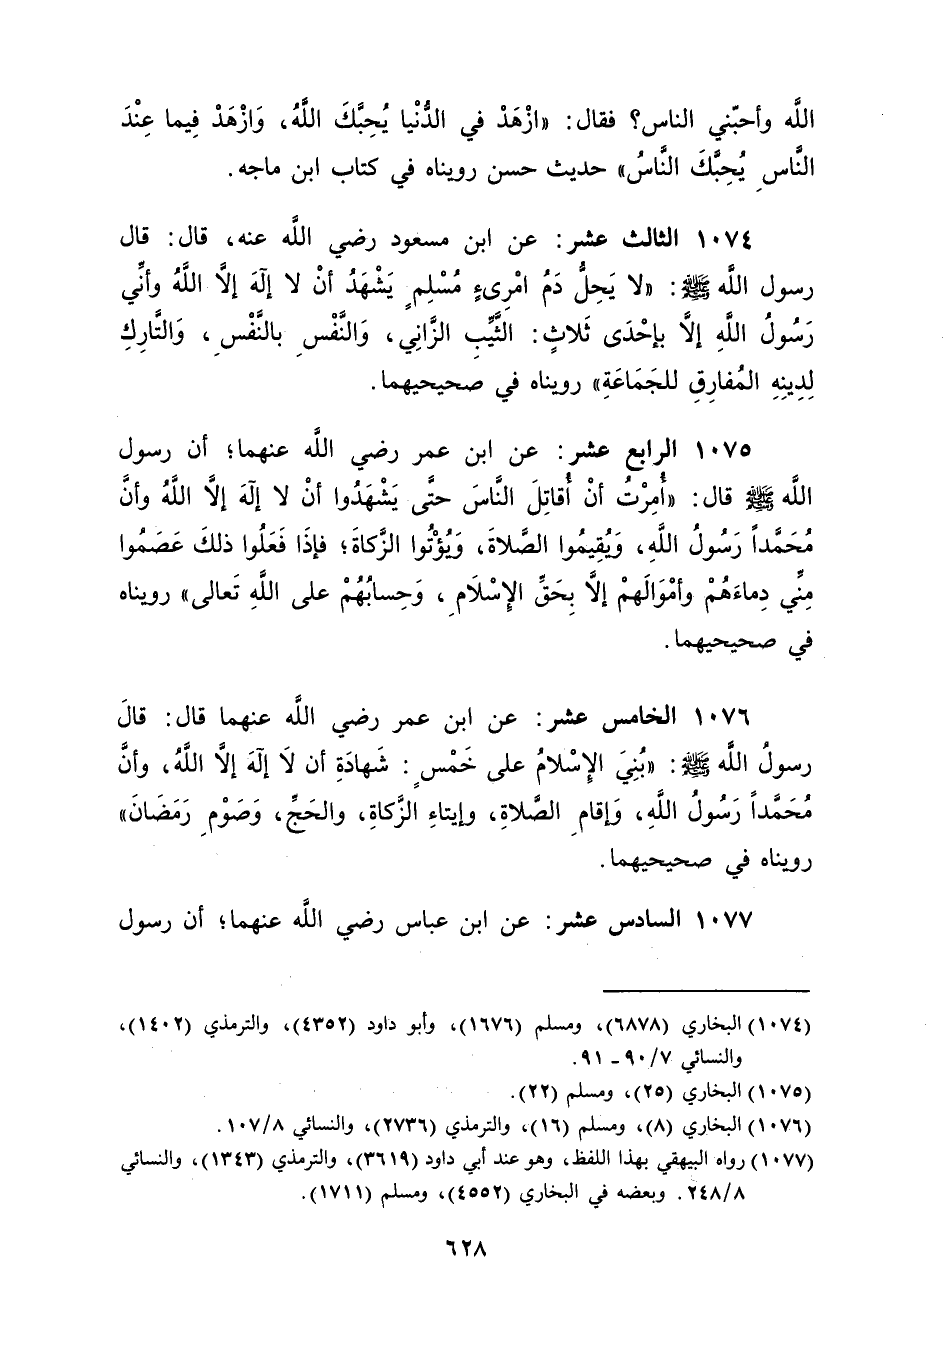 اللَّه وأحبّني الناس؟ فقال: «ازْهَدْ في الدُّنْيا يُحِبَّكَ اللَّهُ، وَازْهَدْ فِيما عِنْدَ
النَّاسِ يُحِبَّكَ النَّاسُ» حديث حسن رويناه في كتاب ابن ماجه.
١٠٧٤ الثالث عشر: عن ابن مسعود رضي اللَّه عنه، قال: قال
رسول اللَّه ﷺ: «لا يَحِلُّ دَمُ امْرِىءٍ مُسْلِمٍ يَشْهَدُ أنْ لا إلَهَ إلَّا اللَّهُ وأنِّي
رَسُولُ اللَّهِ إلَّا بإحْدَى ثَلاثٍ: الثَّيِّبِ الزَّانِي، وَالنَّفْسِ بالنَّفْسِ، وَالتَّارِكِ
لِدِينِهِ المُفارِقِ للجَمَاعَةِ» رويناه في صحيحيهما.
١٠٧٥ الرابع عشر: عن ابن عمر رضي اللَّه عنهما؛ أن رسول
اللَّه ﷺ قال: «أُمِرْتُ أنْ أُقاتِلَ النَّاسَ حتَّى يَشْهَدُوا أنْ لا إلَهَ إلَّا اللَّهُ وأنَّ
مُحَمَّداً رَسُولُ اللَّهِ، وَيُقِيمُوا الصَّلاةَ، وَيُؤْتُوا الزَّكاةَ؛ فإذَا فَعَلُوا ذلكَ عَصَمُوا
مِنِّي دِماءَهُمْ وأمْوَالَهمْ إلَّا بِحَقِّ الإِسْلَامِ، وَحِسابُهُمْ على اللَّهِ تَعالى» رويناه
في صحيحيهما.
١٠٧٦ الخامس عشر: عن ابن عمر رضي اللَّه عنهما قال: قالَ
رسولُ اللَّه ﷺ: «بُنِيَ الإِسْلامُ على خَمْسٍ: شَهادَةِ أن لَا إلَهَ إلَّا اللَّهُ، وأنَّ
مُحَمَّداً رَسُولُ اللَّهِ، وَإقامِ الصَّلاةِ، وإيتاءِ الزَّكاةِ، والحَجِّ، وَصَوْمِ رَمَضَانَ»
رويناه في صحيحيهما.
١٠٧٧ السادس عشر: عن ابن عباس رضي اللَّه عنهما؛ أن رسول
(١٠٧٤) البخاري (٦٨٧٨)، ومسلم (١٦٧٦)، وأبو داود (٤٣٥٢)، والترمذي (١٤٠٢)،
والنسائي ٧/ ٩٠ ـ ٩١.
(١٠٧٥) البخاري (٢٥)، ومسلم (٢٢).
(١٠٧٦) البخاري (٨)، ومسلم (١٦)، والترمذي (٢٧٣٦)، والنسائي ٨/ ١٠٧.
(١٠٧٧) رواه البيهقي بهذا اللفظ، وهو عند أبي داود (٣٦١٩)، والترمذي (١٣٤٣)، والنسائي
٨/ ٢٤٨. وبعضه في البخاري (٤٥٥٢)، ومسلم (١٧١١).
٦٢٨